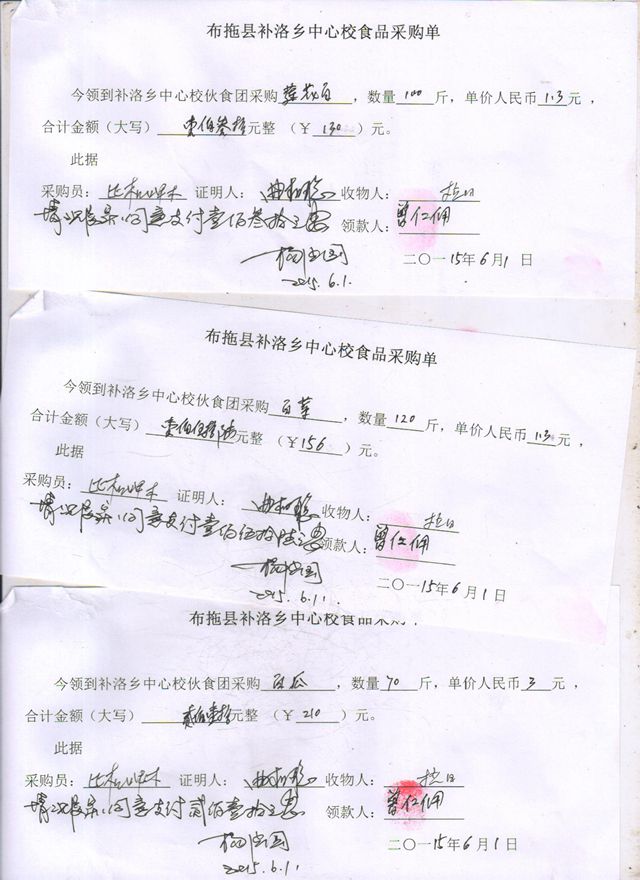 布拖县补洛乡中心校食品采购单
今领到补洛乡中心校伙食团采购莲花白，数量100斤，单价人民币1.3元，
合计金额（大写）壹佰叁拾元整（￥130）元。
此据
采购员： 证明人： 收物人：拉日
情况属实，同意支付壹佰叁拾元 领款人：曾仁佣
二〇一15年6月1日
2015.6.1.
布拖县补洛乡中心校食品采购单
今领到补洛乡中心校伙食团采购白菜，数量120斤，单价人民币1.3元，
合计金额（大写）壹佰伍拾陆元整（￥156）元。
此据
采购员： 证明人： 收物人：拉日
情况属实，同意支付壹佰伍拾陆元 领款人：曾仁佣
二〇一15年6月1日
2015.6.1.
布拖县补洛乡中心校食品采购单
今领到补洛乡中心校伙食团采购白瓜，数量70斤，单价人民币3元，
合计金额（大写）贰佰壹拾元整（￥210）元。
此据
采购员： 证明人： 收物人：拉日
情况属实，同意支付贰佰壹拾元 领款人：曾仁佣
二〇一15年6月1日
2015.6.1.